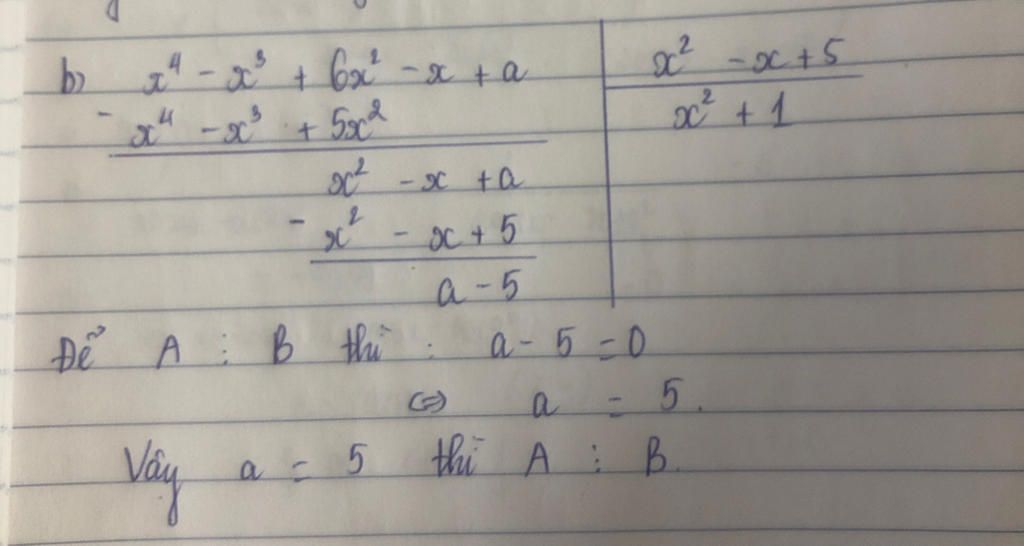 b) x⁴ - x³ + 6x² - x + a | x² - x + 5
- x⁴ - x³ + 5x² | x² + 1
x² - x + a
- x² - x + 5
a - 5
Để A ⋮ B thì : a - 5 = 0
⇔ a = 5.
Vậy a = 5 thì A ⋮ B.